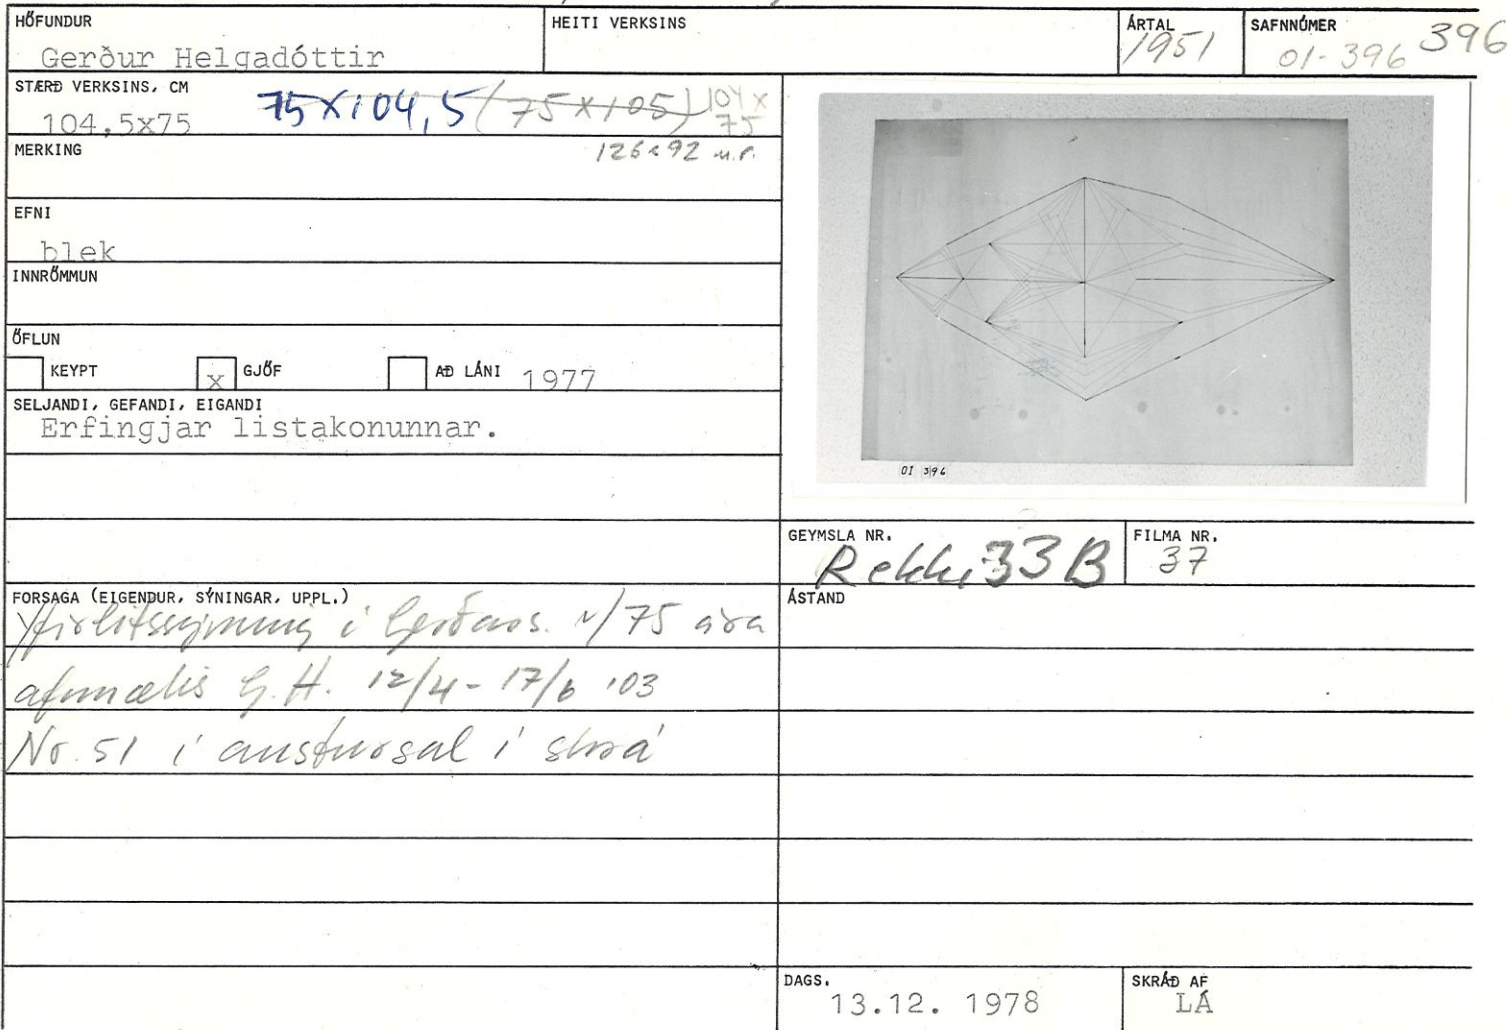 HÖFUNDUR
Gerður Helgadóttir
HEITI VERKSINS
ÁRTAL
1951
SAFNNÚMER
01-396 396
STÆRÐ VERKSINS, CM
104,5x75 75x104,5 (75x105) 104x
75
MERKING
126x92 m.r.
EFNI
blek
INNRÖMMUN
ÖFLUN
KEYPT
x GJÖF
AÐ LÁNI 1977
SELJANDI, GEFANDI, EIGANDI
Erfingjar listakonunnar.
01 396
GEYMSLA NR.
Rekki 33B
FILMA NR.
37
FORSAGA (EIGENDUR, SÝNINGAR, UPPL.)
Yfirlitssýning í Gerðars. v/75 ára
afmælis G.H. 12/4 - 17/6 '03
Nr. 51 í austursal í skrá
ÁSTAND
DAGS.
13.12. 1978
SKRÁÐ AF
LÁ